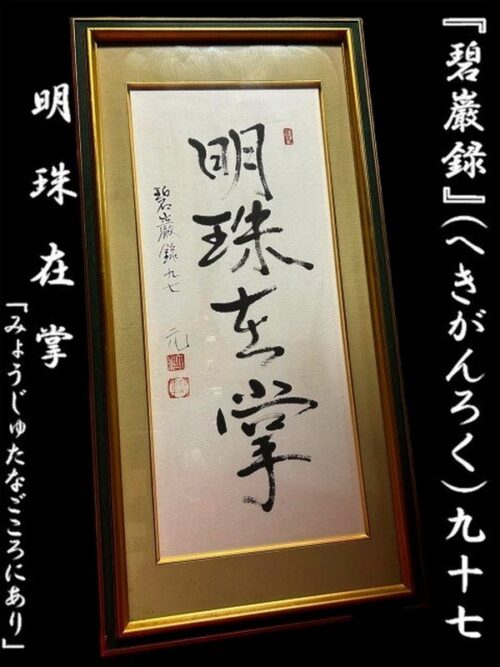 『碧巌録』(へきがんろく)九十七
明珠在掌
碧巌録九七 元
明珠在掌
「みょうじゅたなごころにあり」